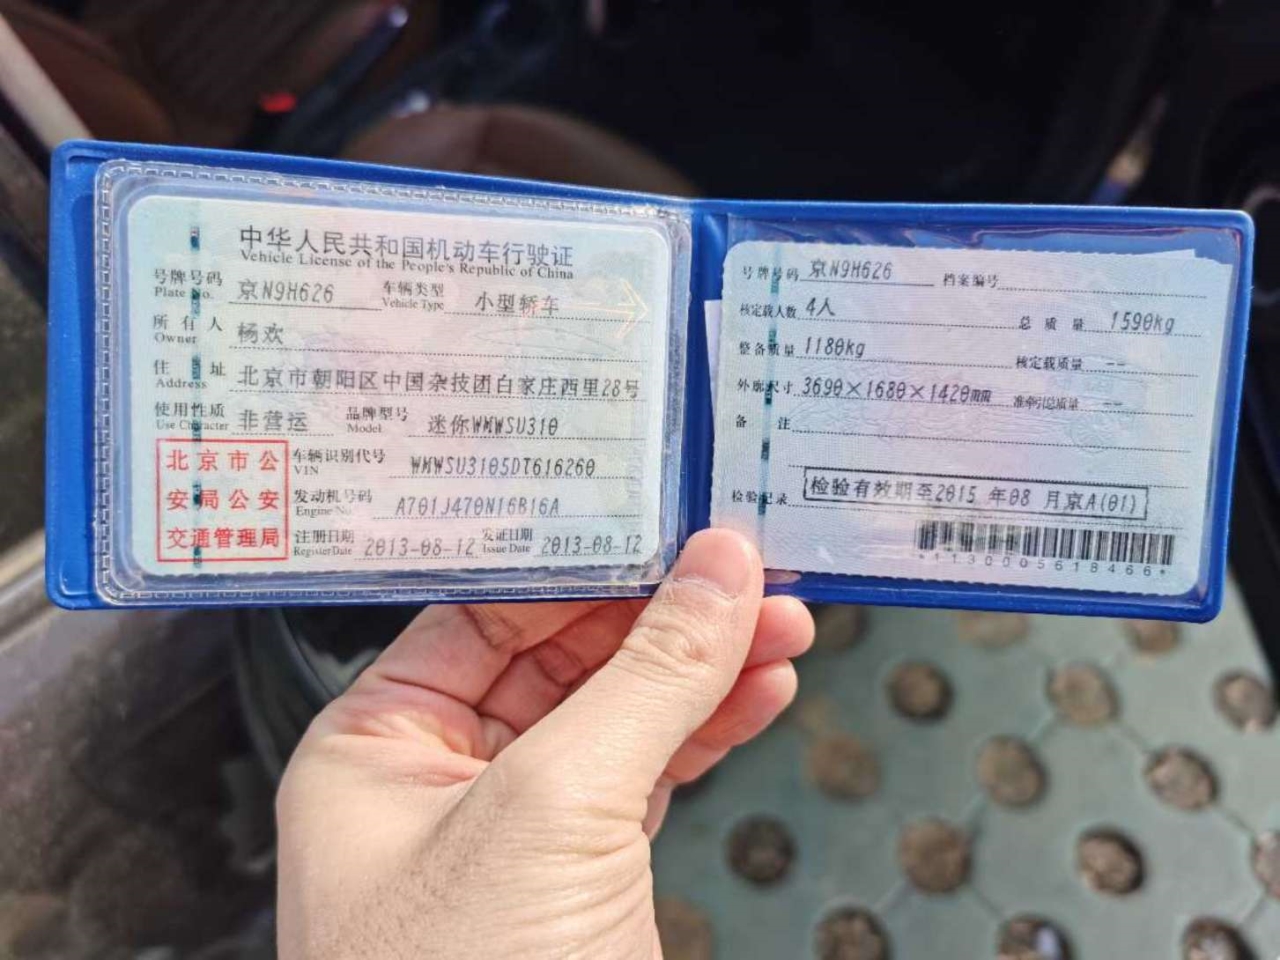 中华人民共和国机动车行驶证
Vehicle License of the People's Republic of China
号牌号码 京N9H626 车辆类型 小型轿车
Plate No. Vehicle Type
所有人 杨欢
Owner
住址 北京市朝阳区中国杂技团白家庄西里28号
Address
使用性质 非营运 品牌型号 迷你WMWSU310
Use Character Model
北京市公
安局公安
交通管理局
车辆识别代号 WMWSU3105DT616260
VIN
发动机号码 A701J470N16B16A
Engine No.
注册日期 2013-08-12 发证日期 2013-08-12
Register Date Issue Date
号牌号码 京N9H626 档案编号
核定载人数 4人 总质量 1590kg
整备质量 1180kg 核定载质量 --
外廓尺寸 3690×1680×1420mm 准牵引总质量 --
备注
检验记录 检验有效期至2015年08月京A(01)
*1130005618466*